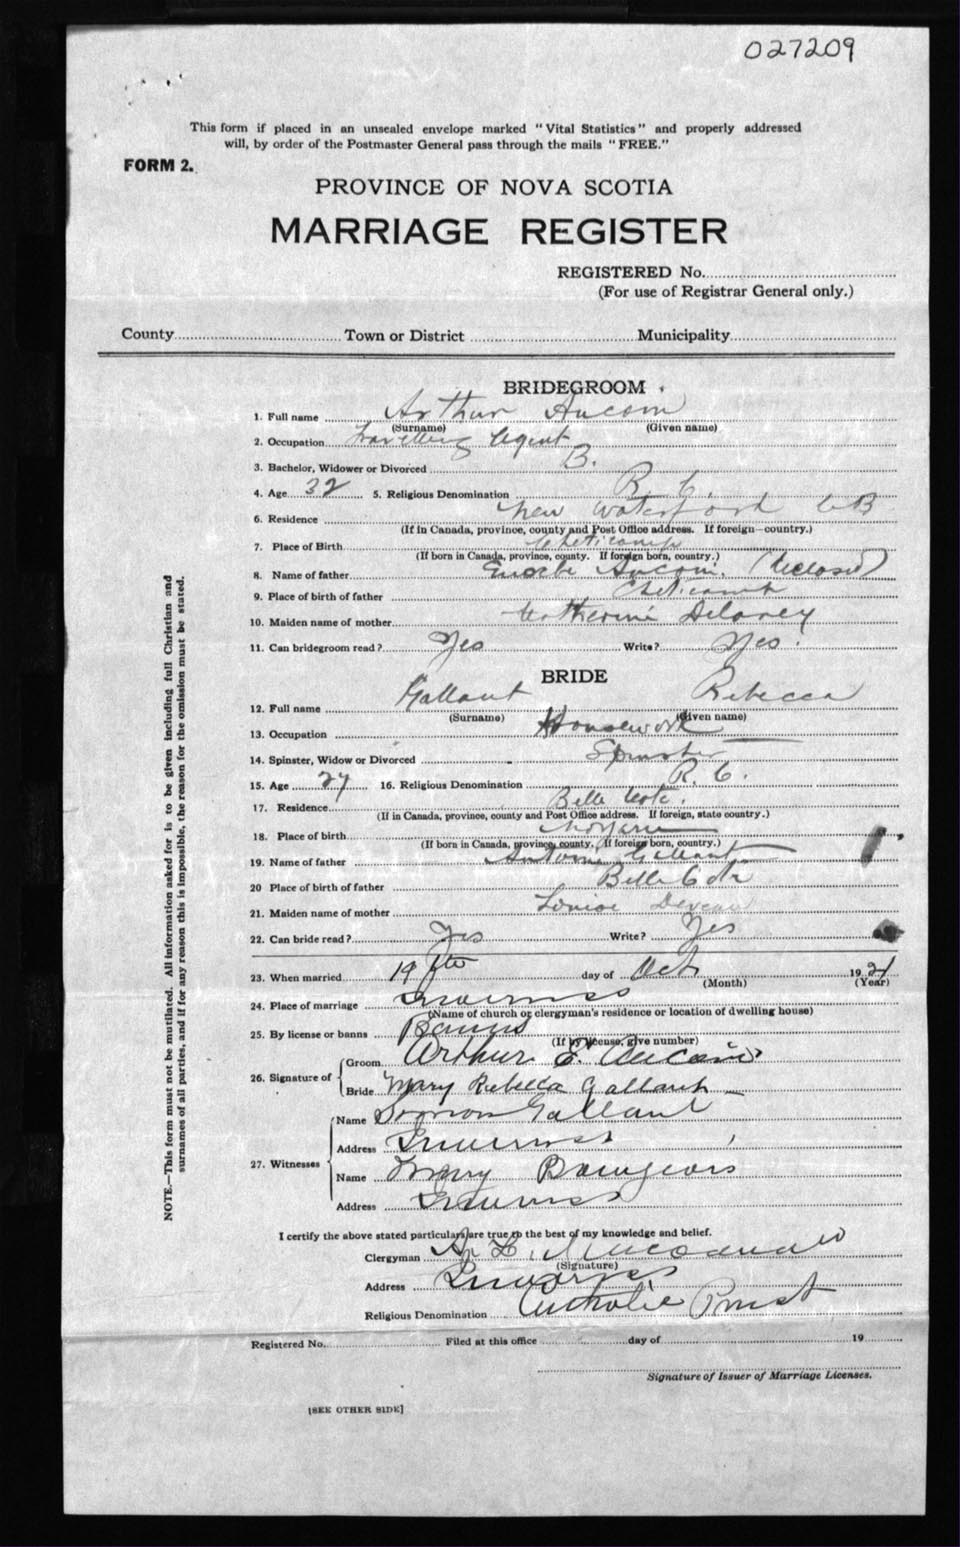 027209
This form if placed in an unsealed envelope marked "Vital Statistics" and properly addressed
will, by order of the Postmaster General pass through the mails "FREE."
FORM 2.
PROVINCE OF NOVA SCOTIA
MARRIAGE REGISTER
REGISTERED No.
(For use of Registrar General only.)
County Town or District Municipality
BRIDEGROOM
1. Full name Arthur Aucoin
(Surname) (Given name)
2. Occupation Travelling Agent
3. Bachelor, Widower or Divorced B.
4. Age 32 5. Religious Denomination R. C.
6. Residence New Waterford CB
(If in Canada, province, county and Post Office address. If foreign—country.)
7. Place of Birth Cheticamp
(If born in Canada, province, county. If foreign born, country.)
8. Name of father Aucoin. (deceased)
9. Place of birth of father Cheticamp
10. Maiden name of mother Catherine Delaney
11. Can bridegroom read? Yes Write? Yes.
BRIDE
12. Full name Gallant Rebecca
(Surname) (Given name)
13. Occupation Housework
14. Spinster, Widow or Divorced Spinster
15. Age 27 16. Religious Denomination R. C.
17. Residence Belle Cote.
(If in Canada, province, county and Post Office address. If foreign, state country.)
18. Place of birth
(If born in Canada, province, county. If foreign born, country.)
19. Name of father Antoine Gallant
20 Place of birth of father Belle Cote
21. Maiden name of mother Louise Deveau
22. Can bride read? Yes Write? Yes
23. When married 19th day of Oct 192
(Month) (Year)
24. Place of marriage Inverness
(Name of church or clergyman's residence or location of dwelling house)
25. By license or banns Banns
(If by license, give number)
26. Signature of Groom Arthur E. Aucoin
Bride Mary Rebecca Gallant
27. Witnesses Name Gallant
Address Inverness
Name Mary Bourgeois
Address Inverness
I certify the above stated particulars are true to the best of my knowledge and belief.
Clergyman A. L. MacDonald
(Signature)
Address Inverness
Religious Denomination Catholic Priest
Registered No. Filed at this office day of 19
Signature of Issuer of Marriage Licenses.
[SEE OTHER SIDE]
NOTE.—This form must not be mutilated. All information asked for is to be given including full Christian and
surnames of all parties, and if for any reason this is impossible, the reason for the omission must be stated.